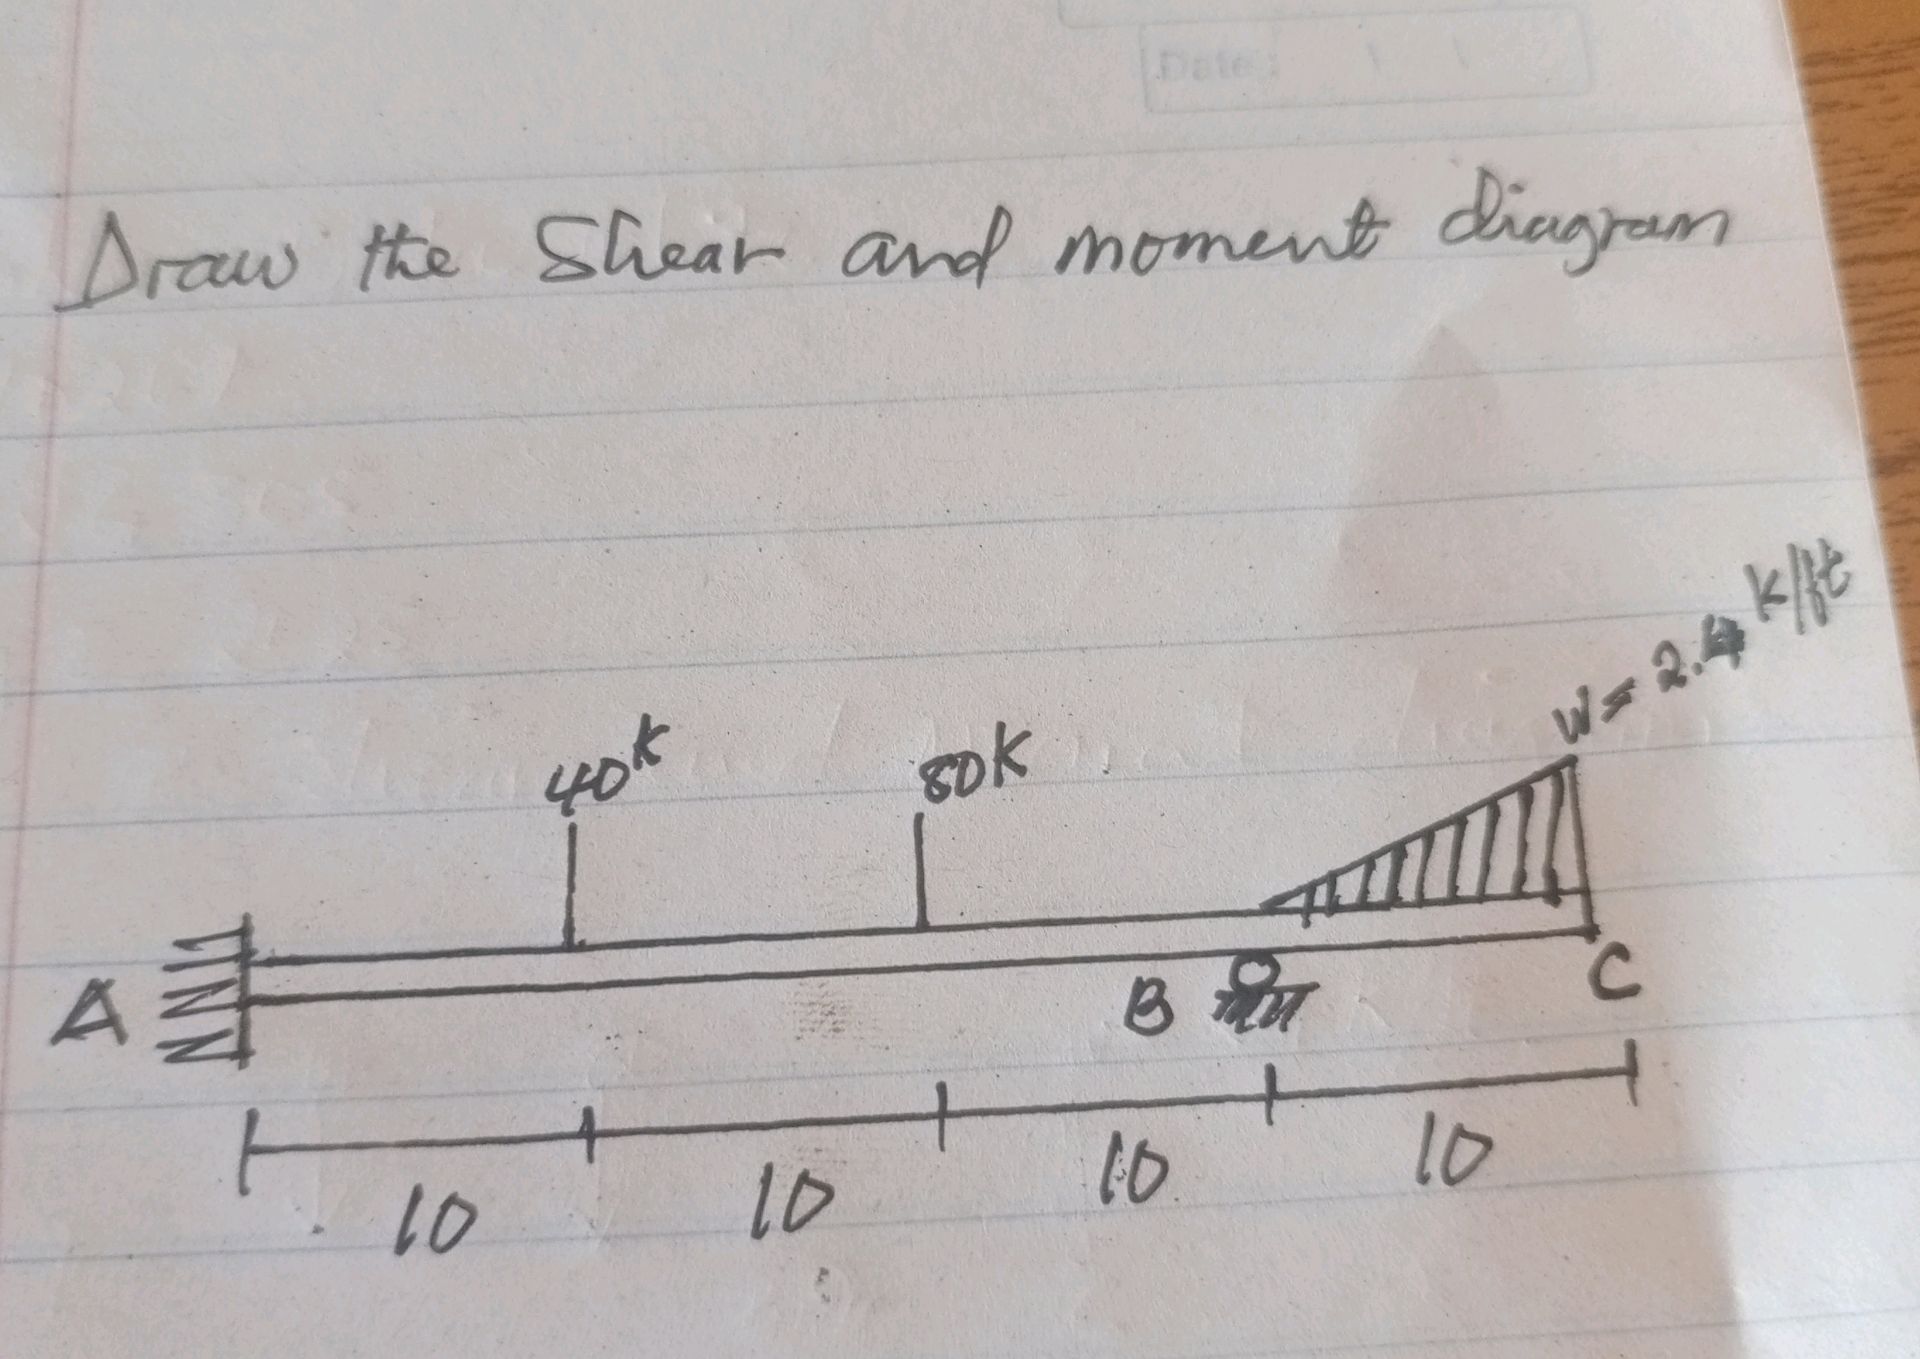 Date :
Draw the Shear and moment diagram
W = 2.4 K/ft
40K
80K
A
B
C
10
10
10
10